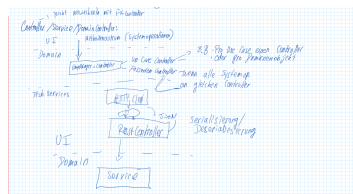 nicht verwechseln mit FX-Controller
Controller/Service/DomainController:
UI
Domain
Empfänger-Controller
Use Case Controller
Fassaden Controller
z.B. Pro Use Case einen Controller
oder pro Domänenobjekt
wenn alle Systemop
an gleichen Controller
Tech Services
HTTP Client
JSON
Rest Controller
Serialisierung/
Deserialisierung
UI
Domain
Service